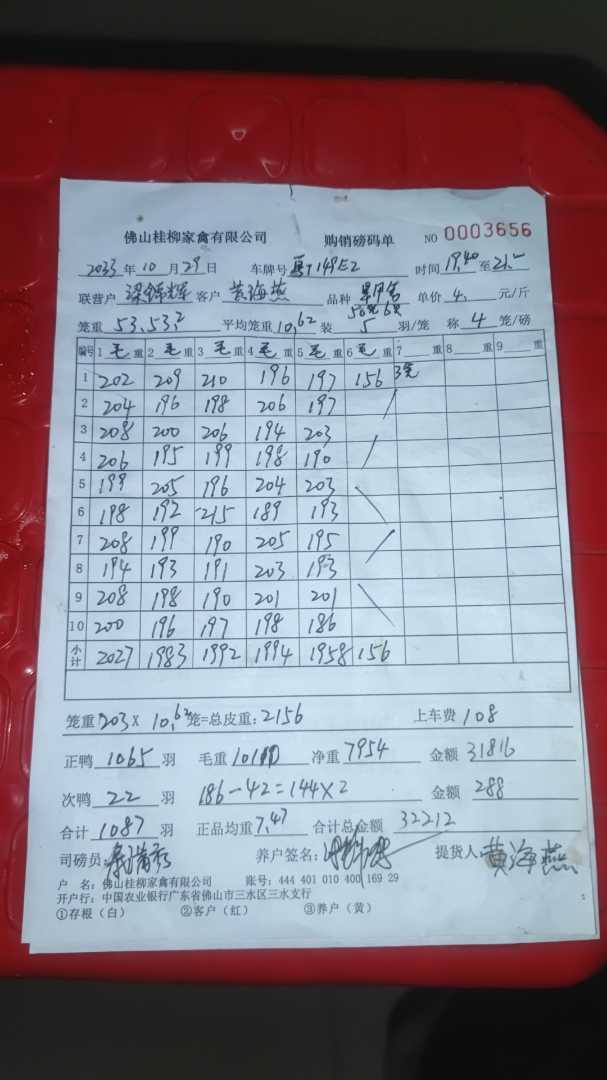 佛山桂柳家禽有限公司 购销磅码单 NO 0003656
2033年10月29日 车牌号 149E2 时间19,40至21,
联营户 梁锦辉 客户 黄海燕 品种 单价 4. 元/斤
笼重 53,53,2 平均笼重 10,62 装 5 羽/笼 称 4 笼/磅
编号 1 毛重 2 毛重 3 毛重 4 毛重 5 毛重 6 毛重 7 重 8 重 9 重
1 202 209 210 196 197 156 3笼
2 204 196 198 206 197
3 208 200 206 194 203
4 206 195 199 198 190
5 199 205 196 204 203
6 198 192 215 189 193
7 208 199 190 205 195
8 194 193 191 203 193
9 208 198 190 201 201
10 200 196 197 198 186
小计 2027 1983 1992 1994 1958 156
笼重 203 × 10,62 笼=总皮重: 2156 上车费 108
正鸭 1065 羽 毛重 10110 净重 7954 金额 31816
次鸭 22 羽 186-42=144×2 金额 288
合计 1087 羽 正品均重 7,47 合计总金额 32212
司磅员: 养户签名: 提货人: 黄海燕
户 名: 佛山桂柳家禽有限公司 账号: 444 401 010 400 169 29
开户行: 中国农业银行广东省佛山市三水区三水支行
①存根(白) ②客户(红) ③养户(黄)